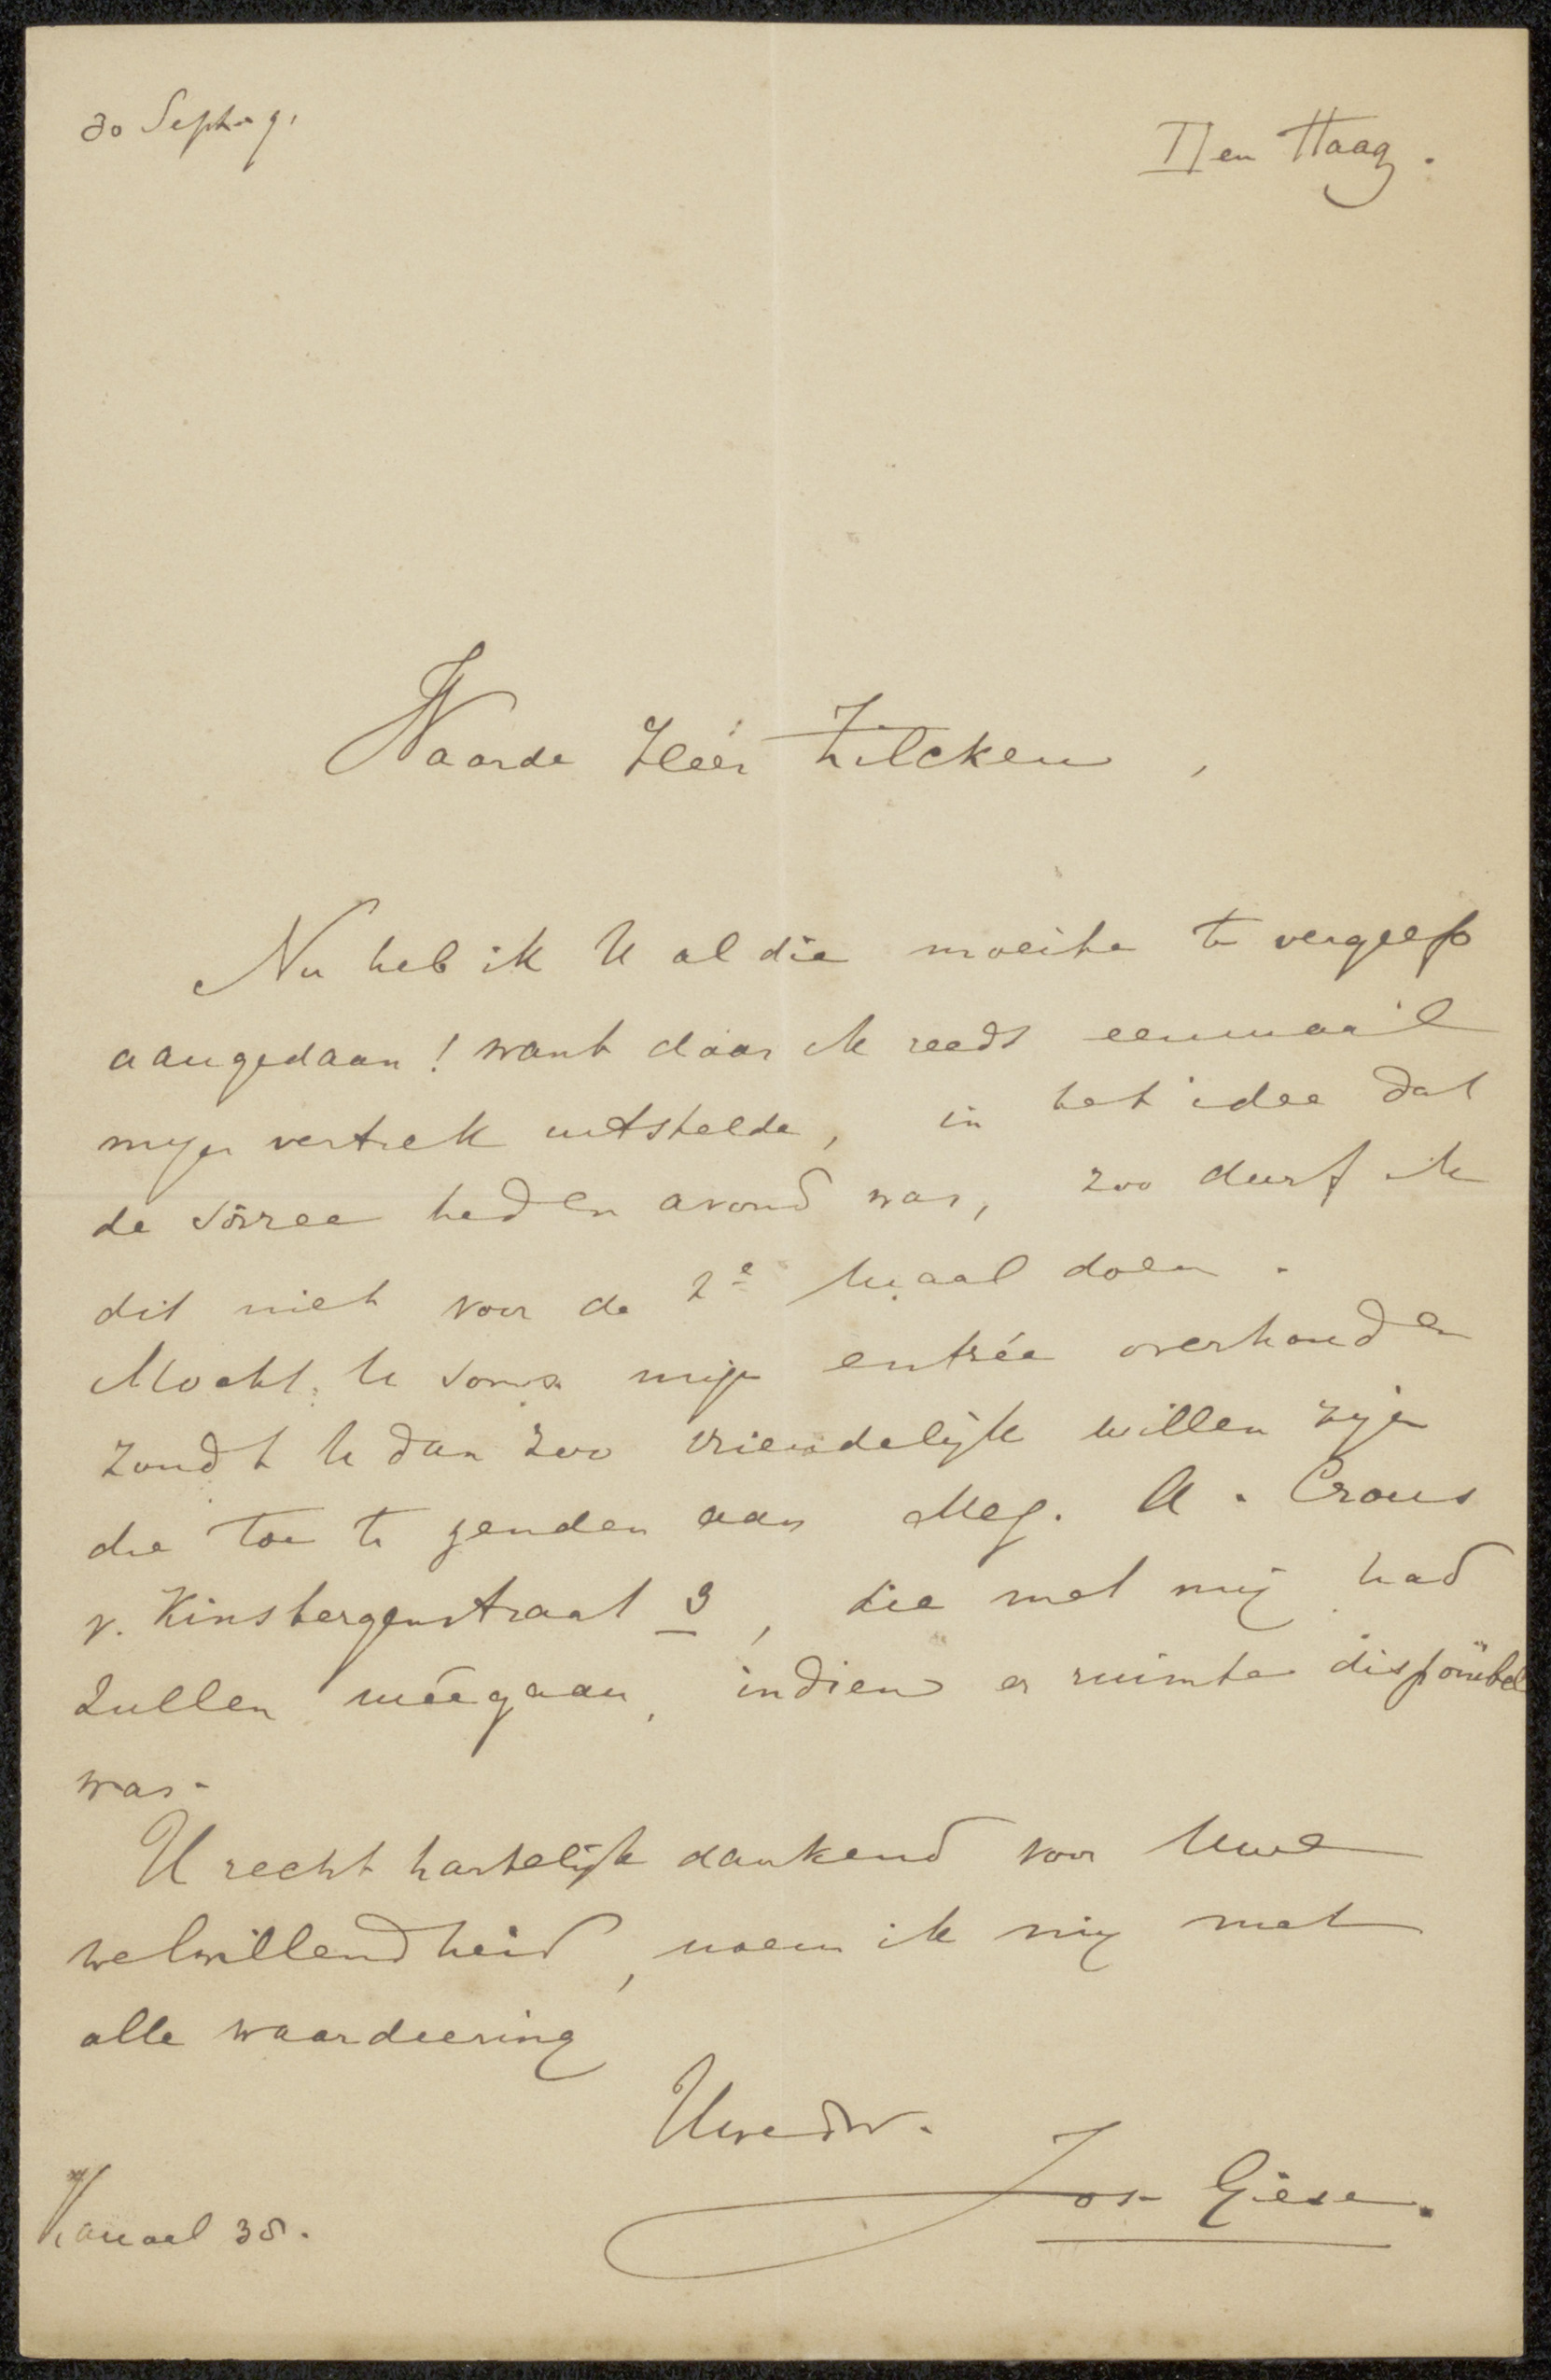 30 Sept. 91
Den Haag.
Waarde Heer Zilcken,
Nu heb ik U al die moeite te vergeefs
aangedaan! want daar ik reeds eenmaal
mijn vertrek uitstelde, in het idee dat
de soiree heden avond was, zoo durf ik
dit niet voor de 2e maal doen.
Mocht U soms mijn entrée overhouden
zoudt U dan zoo vriendelijk willen zijn
die toe te zenden aan Mej. A. Crous
v. Kinsbergenstraat 3, die met mij had
zullen méegaan, indien er ruimte disponibel
was.
U recht hartelijk dankend voor Uwe
welwillendheid, noem ik mij met
alle waardeering
Uwedw.
Jos. Giese.
Kanaal 38.